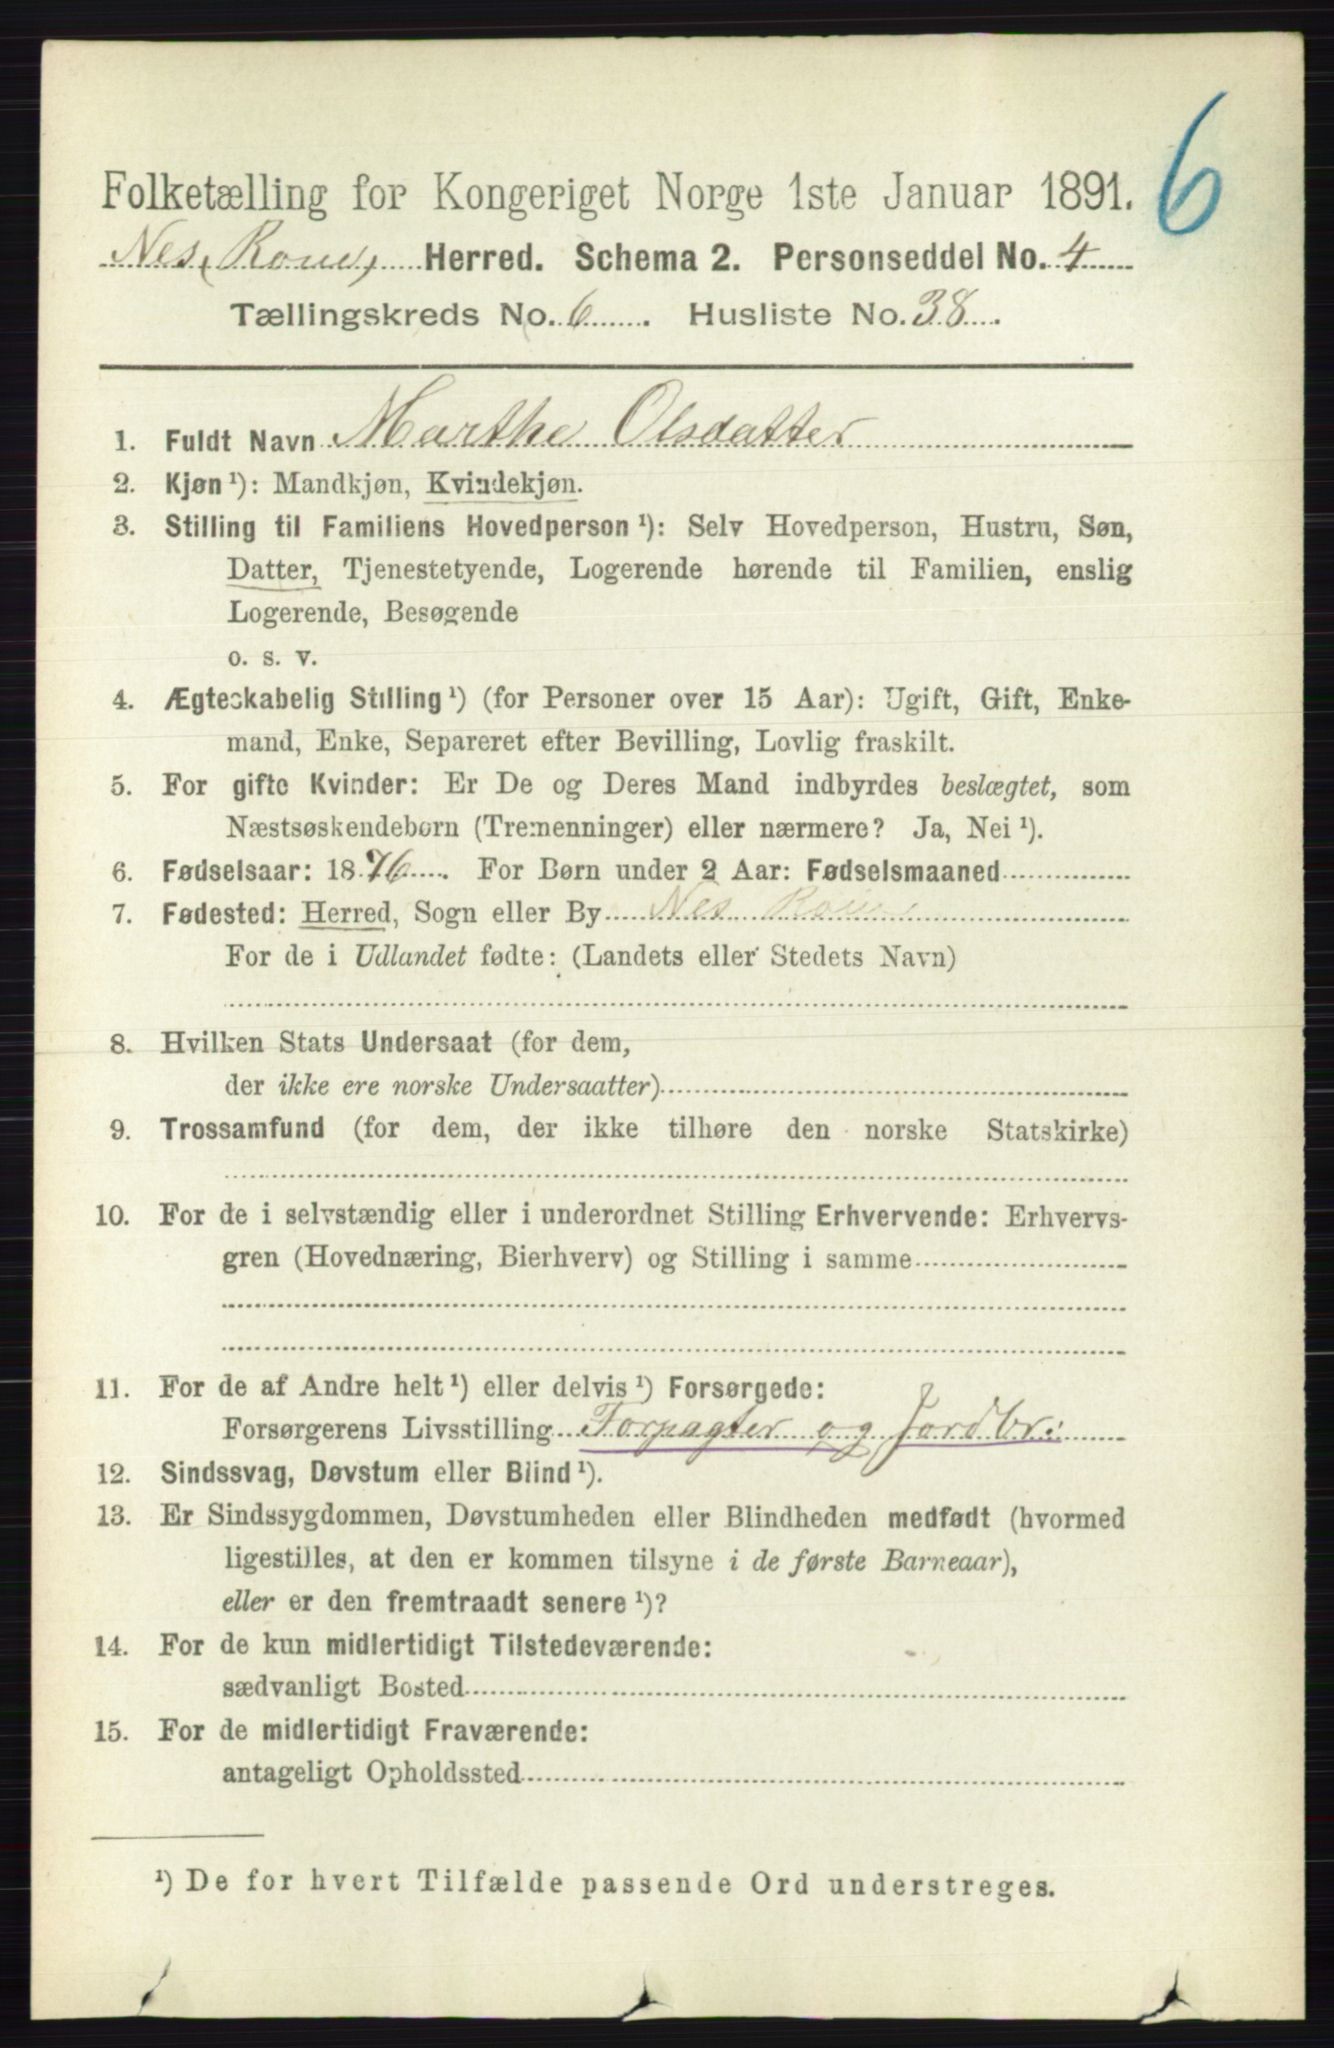 6
Folketælling for Kongeriget Norge 1ste Januar 1891.
Nes, Rom, Herred. Schema 2. Personseddel No. 4
Tællingskreds No. 6. Husliste No. 38.
1. Fuldt Navn Marthe Olsdatter
2. Kjøn ¹): Mandkjøn, Kvindekjøn.
3. Stilling til Familiens Hovedperson ¹): Selv Hovedperson, Hustru, Søn,
Datter, Tjenestetyende, Logerende hørende til Familien, enslig
Logerende, Besøgende
o. s. v.
4. Ægteskabelig Stilling ¹) (for Personer over 15 Aar): Ugift, Gift, Enke-
mand, Enke, Separeret efter Bevilling, Lovlig fraskilt.
5. For gifte Kvinder: Er De og Deres Mand indbyrdes beslægtet, som
Næstsøskendebørn (Tremenninger) eller nærmere? Ja, Nei ¹).
6. Fødselsaar: 1876. For Børn under 2 Aar: Fødselsmaaned
7. Fødested: Herred, Sogn eller By Nes Rom
For de i Udlandet fødte: (Landets eller Stedets Navn)
8. Hvilken Stats Undersaat (for dem,
der ikke ere norske Undersaatter)
9. Trossamfund (for dem, der ikke tilhøre den norske Statskirke)
10. For de i selvstændig eller i underordnet Stilling Erhvervende: Erhvervs-
gren (Hovednæring, Bierhverv) og Stilling i samme
11. For de af Andre helt ¹) eller delvis ¹) Forsørgede:
Forsørgerens Livsstilling Forpagter og Jordbr:
12. Sindssvag, Døvstum eller Blind ¹).
13. Er Sindssygdommen, Døvstumheden eller Blindheden medfødt (hvormed
ligestilles, at den er kommen tilsyne i de første Barneaar),
eller er den fremtraadt senere ¹)?
14. For de kun midlertidigt Tilstedeværende:
sædvanligt Bosted
15. For de midlertidigt Fraværende:
antageligt Opholdssted
¹) De for hvert Tilfælde passende Ord understreges.